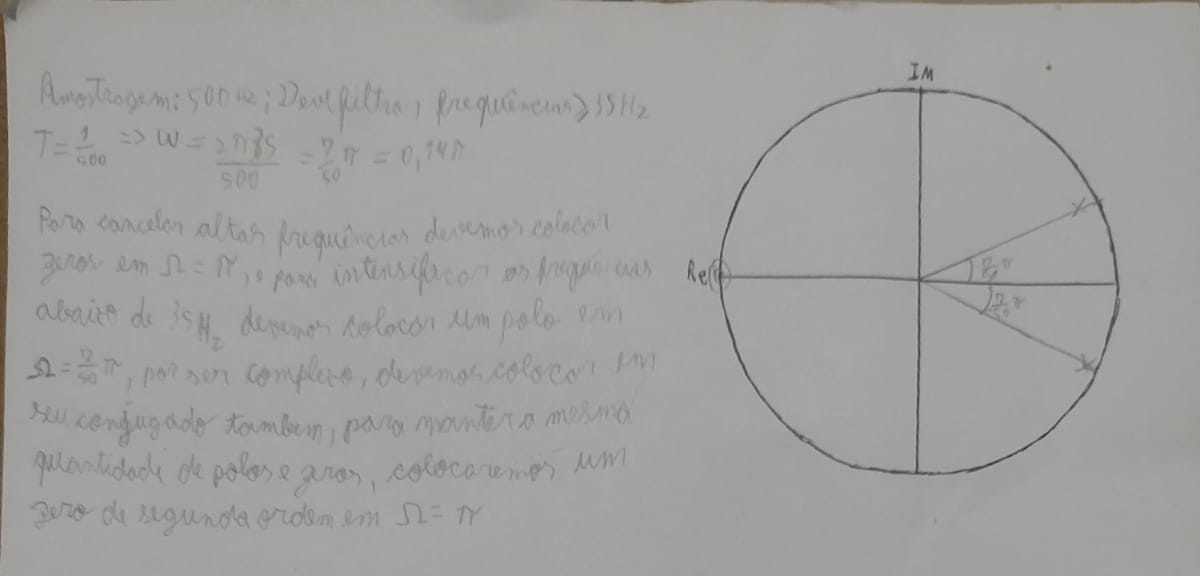 Amostragem: 500Hz; Deve filtrar frequências ≥ 35Hz
T = 1/500 => W = 2π35/500 = 7/50 π = 0,14π
Para cancelar altas frequências devemos colocar
zeros em Ω = π, e para intensificar as frequências
abaixo de 35Hz devemos colocar um polo em
Ω = 7/50 π, por ser complexo, devemos colocar em
seu conjugado tambem, para manter a mesma
quantidade de polos e zeros, colocaremos um
zero de segunda ordem em Ω = π
IM
Re
7/50 π
7/50 π